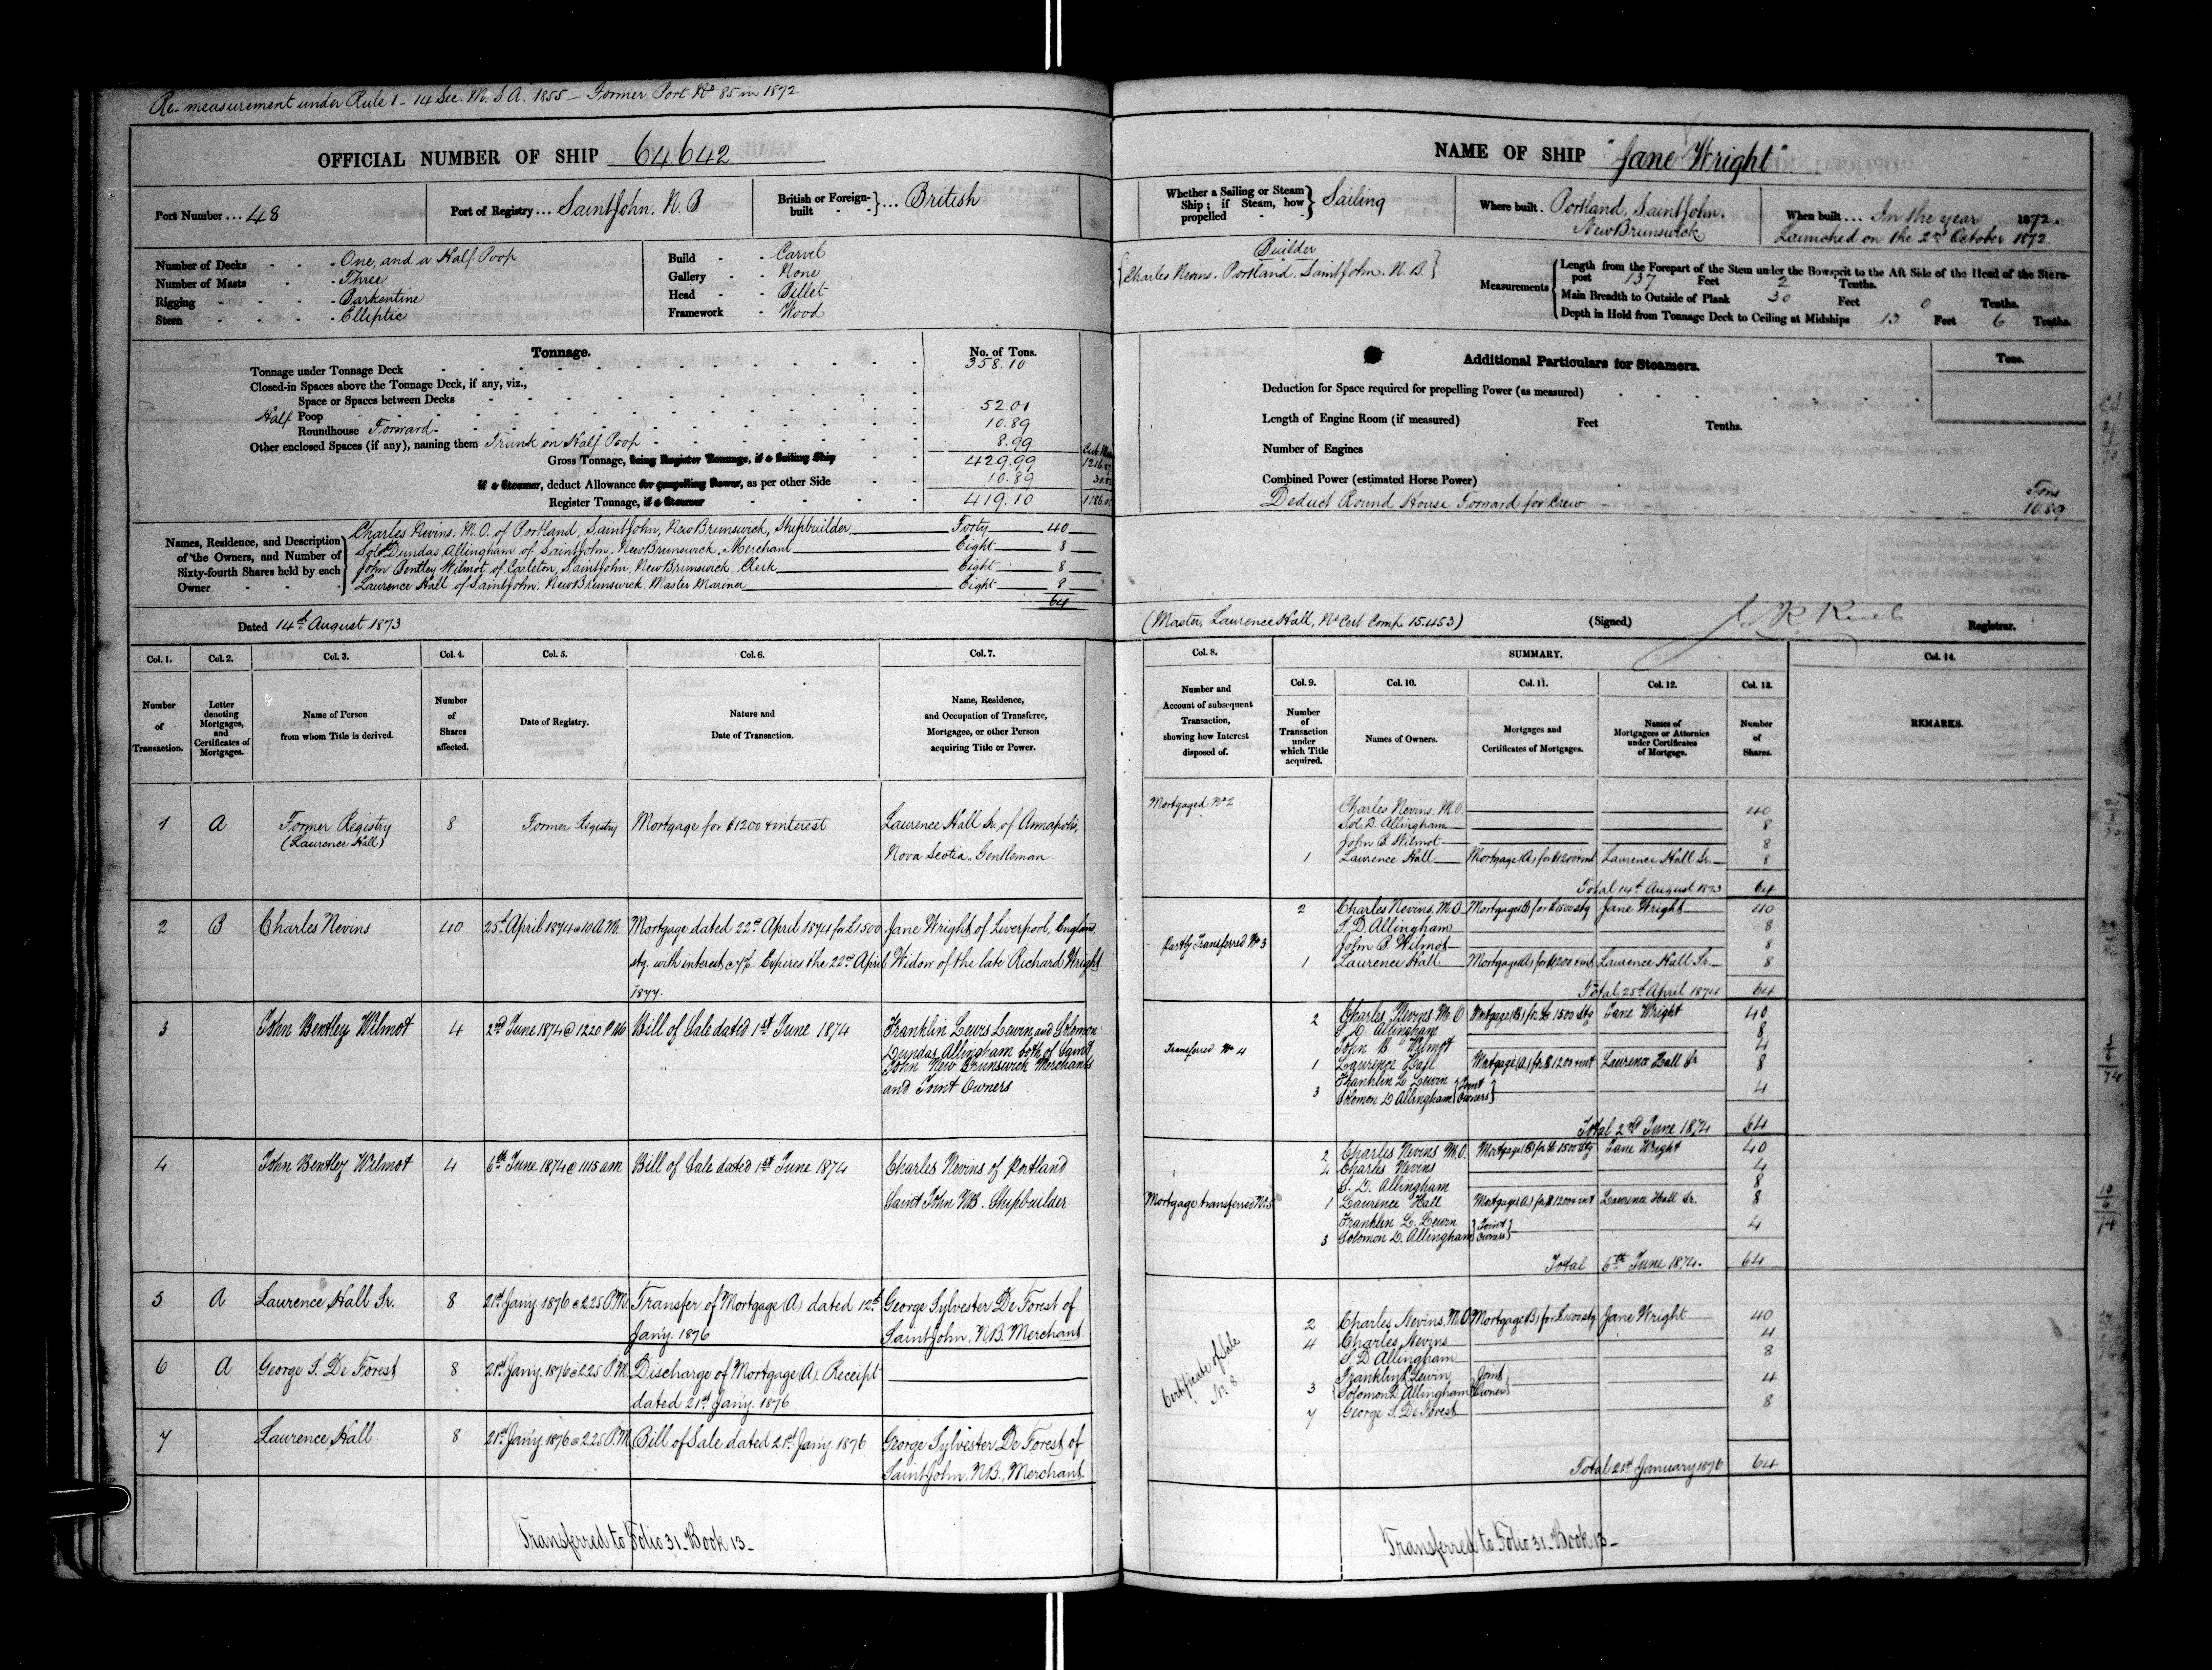 Re-measurement under Rule 1 - 14 Sec. M. S. A. 1855 - Former Port No 85 in 1872
OFFICIAL NUMBER OF SHIP 64642
Port Number ... 48
Port of Registry ... Saint John. N. B
British or Foreign-built } ... British
Number of Decks - One, and a Half Poop
Number of Masts - Three
Rigging - Barkentine
Stern - Elliptic
Build - Carvel
Gallery - None
Head - Billet
Framework - Wood
Tonnage. No. of Tons.
Tonnage under Tonnage Deck 358.10
Closed-in Spaces above the Tonnage Deck, if any, viz.,
Space or Spaces between Decks
Half Poop 52.01
Roundhouse Forward 10.89
Other enclosed Spaces (if any), naming them Trunk on Half Poop 8.99
Gross Tonnage, being Register Tonnage, if a Sailing Ship 429.99
If a Steamer, deduct Allowance for propelling Power, as per other Side 10.89
Register Tonnage, if a Steamer 419.10
Names, Residence, and Description of the Owners, and Number of Sixty-fourth Shares held by each Owner
Charles Nevins. M. O. of Portland, Saint John, New Brunswick, Shipbuilder Forty 40
Sol. Dundas Allingham of Saint John. New Brunswick, Merchant Eight 8
John Bentley Wilmot of Carleton, Saint John. New Brunswick, Clerk Eight 8
Laurence Hall of Saint John. New Brunswick, Master Mariner Eight 8
64
Dated 14th August 1873
Col. 1. Col. 2. Col. 3. Col. 4. Col. 5. Col. 6. Col. 7.
Number of Transaction.
Letter denoting Mortgages, and Certificates of Mortgages.
Name of Person from whom Title is derived.
Number of Shares affected.
Date of Registry.
Nature and Date of Transaction.
Name, Residence, and Occupation of Transferee, Mortgagee, or other Person acquiring Title or Power.
1 A Former Registry 8 Former Registry Mortgage for $1200 & interest Laurence Hall Sr., of Annapolis,
(Laurence Hall) Nova Scotia, Gentleman
2 B Charles Nevins 40 25th April 1874 @ 10 A.M. Mortgage dated 22nd April 1874 for £1500 Jane Wright of Liverpool, England
stg. with interest @ 7% Expires the 22nd April Widow of the late Richard Wright
1877.
3 John Bentley Wilmot 4 2nd June 1874 @ 12 20 P M Bill of Sale dated 1st June 1874 Franklin Lewis Lewin and Solomon
Dundas Allingham both of Saint
John New Brunswick Merchants
and Joint Owners
4 John Bentley Wilmot 4 6th June 1874 @ 11 15 am Bill of Sale dated 1st June 1874 Charles Nevins of Portland
Saint John N.B. Shipbuilder
5 A Laurence Hall Sr. 8 21st Jany 1876 @ 2.25 P.M. Transfer of Mortgage (A) dated 12th George Sylvester De Forest of
Jany. 1876 Saint John, N.B. Merchant
6 A George S. De Forest 8 21st Jany. 1876 @ 2.25 P.M. Discharge of Mortgage (A). Receipt
dated 21st Jany. 1876
7 Laurence Hall 8 21st Jany 1876 @ 2.25 P.M. Bill of Sale dated 21st Jany. 1876 George Sylvester De Forest of
Saint John, N.B., Merchant.
Transferred to Folio 31 - Book 13 -
NAME OF SHIP "Jane Wright"
Whether a Sailing or Steam Ship; if Steam, how propelled } Sailing
Where built. Portland, Saint John. New Brunswick
When built ... In the year 1872.
Launched on the 2nd October 1872.
Builder
{Charles Nevins. Portland, Saint John. N. B.}
Measurements
Length from the Forepart of the Stem under the Bowsprit to the Aft Side of the Head of the Sternpost 137 Feet 2 Tenths.
Main Breadth to Outside of Plank 30 Feet 0 Tenths.
Depth in Hold from Tonnage Deck to Ceiling at Midships 13 Feet 6 Tenths.
Additional Particulars for Steamers. Tons.
Deduction for Space required for propelling Power (as measured)
Length of Engine Room (if measured) Feet Tenths.
Number of Engines
Combined Power (estimated Horse Power)
Deduct Round House Forward for Crew Tons 10.89
(Master, Laurence Hall, No Cert Comp. 15.453)
(Signed) Registrar.
Col. 8. SUMMARY. Col. 14.
Col. 9. Col. 10. Col. 11. Col. 12. Col. 13.
Number and Account of subsequent Transaction, showing how Interest disposed of.
Number of Transaction under which Title acquired.
Names of Owners.
Mortgages and Certificates of Mortgages.
Names of Mortgagees or Attornies under Certificates of Mortgage.
Number of Shares.
REMARKS.
Mortgaged No 2 Charles Nevins. M.O. 40
Sol. D. Allingham 8
John B. Wilmot 8
1 Laurence Hall Mortgage (A) for $1200 & int Laurence Hall Sr. 8
Total 14th August 1873 64
2 Charles Nevins. M.O. Mortgage (B) for £1500 stg Jane Wright 40
S. D. Allingham 8
Partly Transferred No 3 John B. Wilmot 8
1 Laurence Hall Mortgage (A) for $1200 & int Laurence Hall Sr. 8
Total 25th April 1874 64
2 Charles Nevins M. O Mortgage (B) for £ 1500 Stg Jane Wright 40
S D Allingham 8
Transferred No 4 John B Wilmot 4
1 Laurence Hall Mortgage (A) for $ 1200 & int Laurence Hall Sr 8
3 Franklin L Lewin
Solomon D Allingham {Joint Owners} 4
Total 2nd June 1874 64
2 Charles Nevins M.O. Mortgage (B) for £ 1500 Stg Jane Wright 40
4 Charles Nevins 4
S. D. Allingham 8
Mortgage transferred No 5 1 Laurence Hall Mortgage (A) for $ 1200 & int Laurence Hall Sr. 8
Franklin L. Lewin
3 Solomon D. Allingham } Joint Owners } 4
Total 6th June 1874. 64
2 Charles Nevins. M.O Mortgage (B) for £1500 stg Jane Wright 40
4 Charles Nevins 4
S. D. Allingham 8
Certificate of Sale No. 8
3 Franklin L Lewin
Solomon D. Allingham Joint Owners 4
7 George S. De Forest 8
Total 21st January 1876 64
Transferred to Folio 31 - Book 13 -